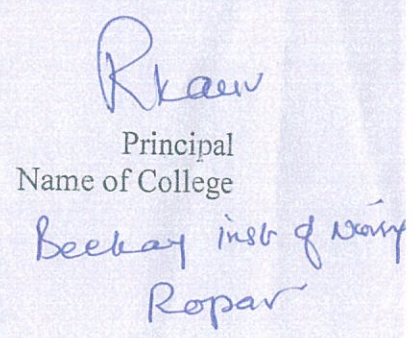 Rkaur
Principal
Name of College
Beekay inst of Nursing
Ropar